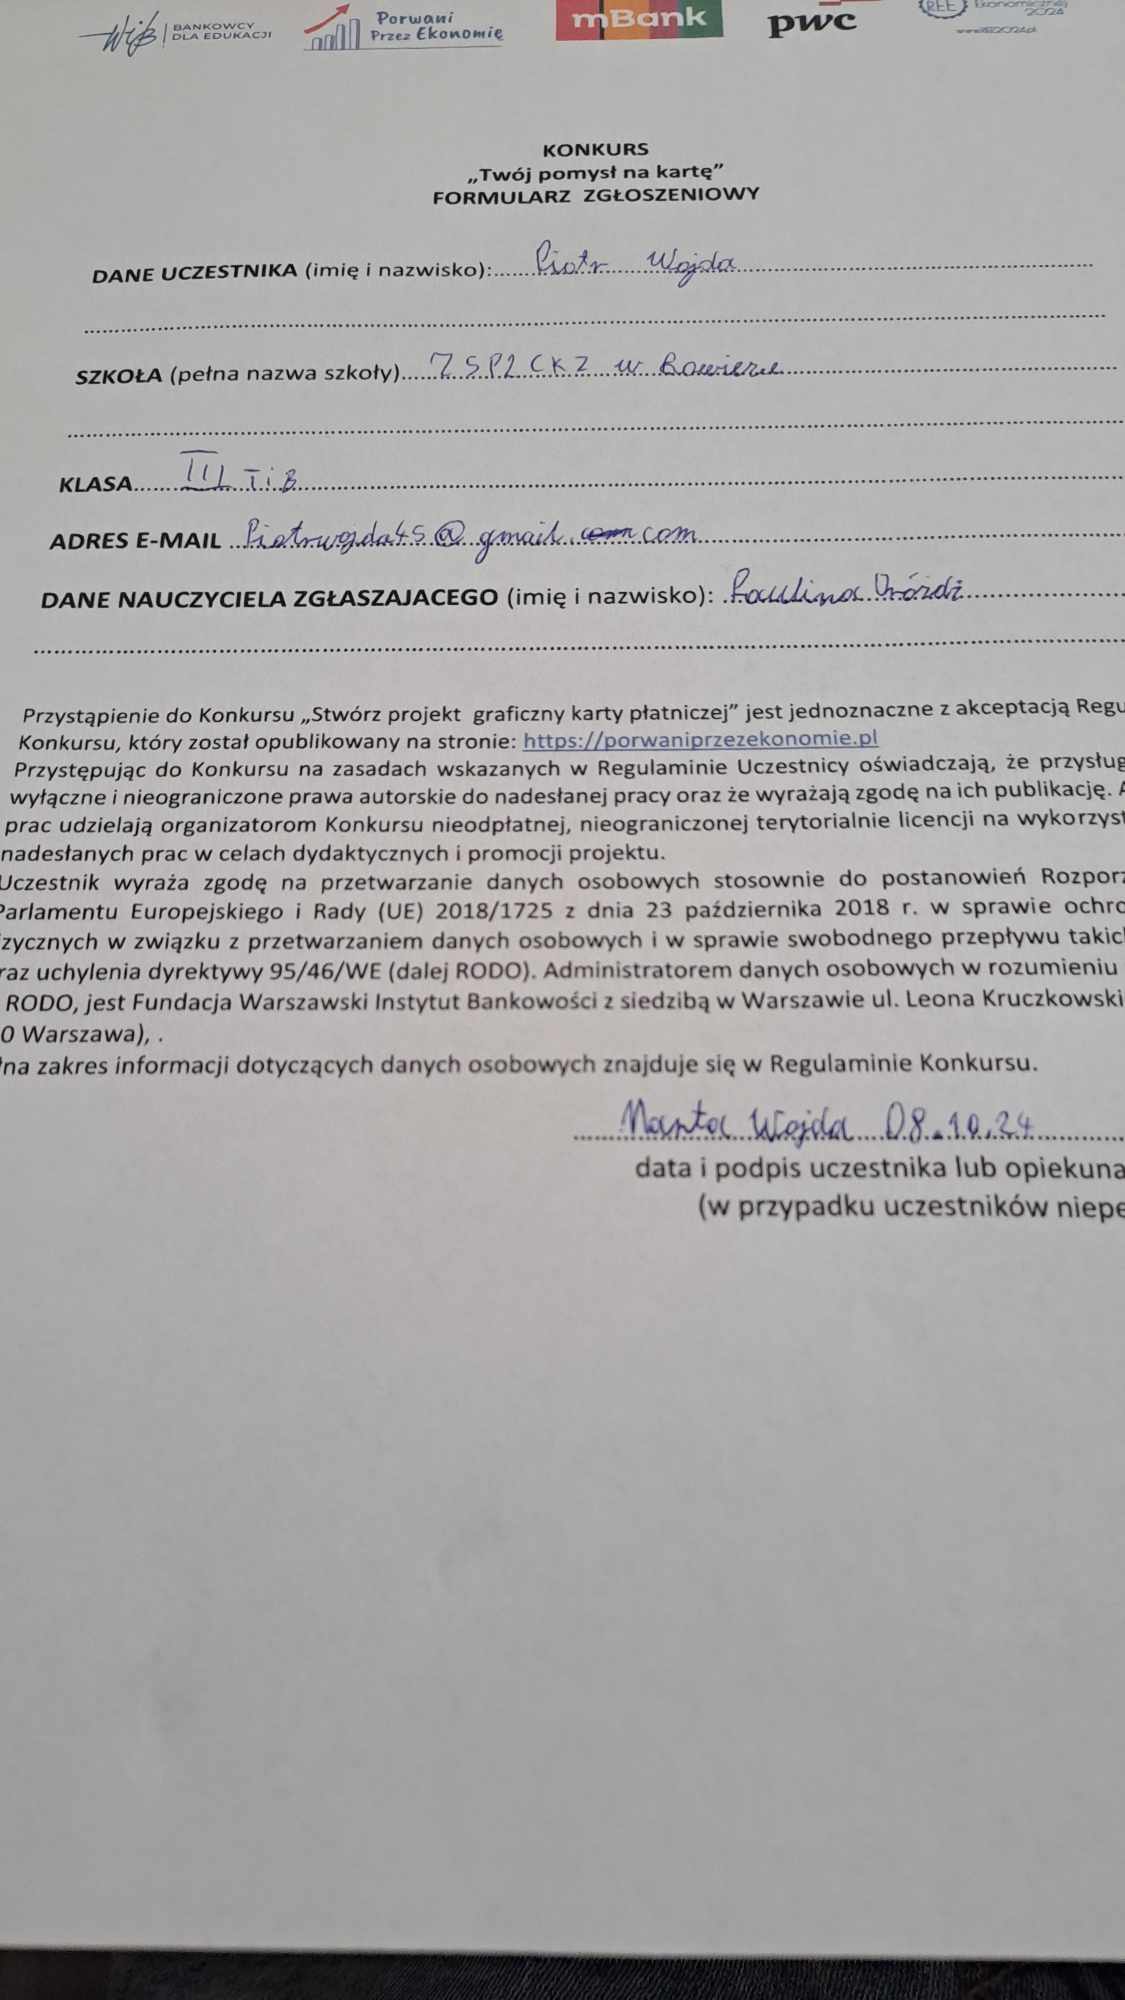 WIB BANKOWCY
DLA EDUKACJI
Porwani
Przez Ekonomię
mBank
pwc
Ekonomicznej
2024
KONKURS
„Twój pomysł na kartę”
FORMULARZ ZGŁOSZENIOWY
DANE UCZESTNIKA (imię i nazwisko): Piotr Wojda
SZKOŁA (pełna nazwa szkoły) ZSP2 CKZ w
KLASA III TiB
ADRES E-MAIL Piotrwojda45@gmail.com
DANE NAUCZYCIELA ZGŁASZAJACEGO (imię i nazwisko): Paulina Dróżdż
Przystąpienie do Konkursu „Stwórz projekt graficzny karty płatniczej” jest jednoznaczne z akceptacją Regu
Konkursu, który został opublikowany na stronie: https://porwaniprzezekonomie.pl
Przystępując do Konkursu na zasadach wskazanych w Regulaminie Uczestnicy oświadczają, że przysług
wyłączne i nieograniczone prawa autorskie do nadesłanej pracy oraz że wyrażają zgodę na ich publikację. A
prac udzielają organizatorom Konkursu nieodpłatnej, nieograniczonej terytorialnie licencji na wykorzyst
nadesłanych prac w celach dydaktycznych i promocji projektu.
Uczestnik wyraża zgodę na przetwarzanie danych osobowych stosownie do postanowień Rozporz
Parlamentu Europejskiego i Rady (UE) 2018/1725 z dnia 23 października 2018 r. w sprawie ochro
izycznych w związku z przetwarzaniem danych osobowych i w sprawie swobodnego przepływu takich
raz uchylenia dyrektywy 95/46/WE (dalej RODO). Administratorem danych osobowych w rozumieniu
RODO, jest Fundacja Warszawski Instytut Bankowości z siedzibą w Warszawie ul. Leona Kruczkowski
0 Warszawa), .
łna zakres informacji dotyczących danych osobowych znajduje się w Regulaminie Konkursu.
Marta Wojda 08.10.24
data i podpis uczestnika lub opiekuna
(w przypadku uczestników niepe